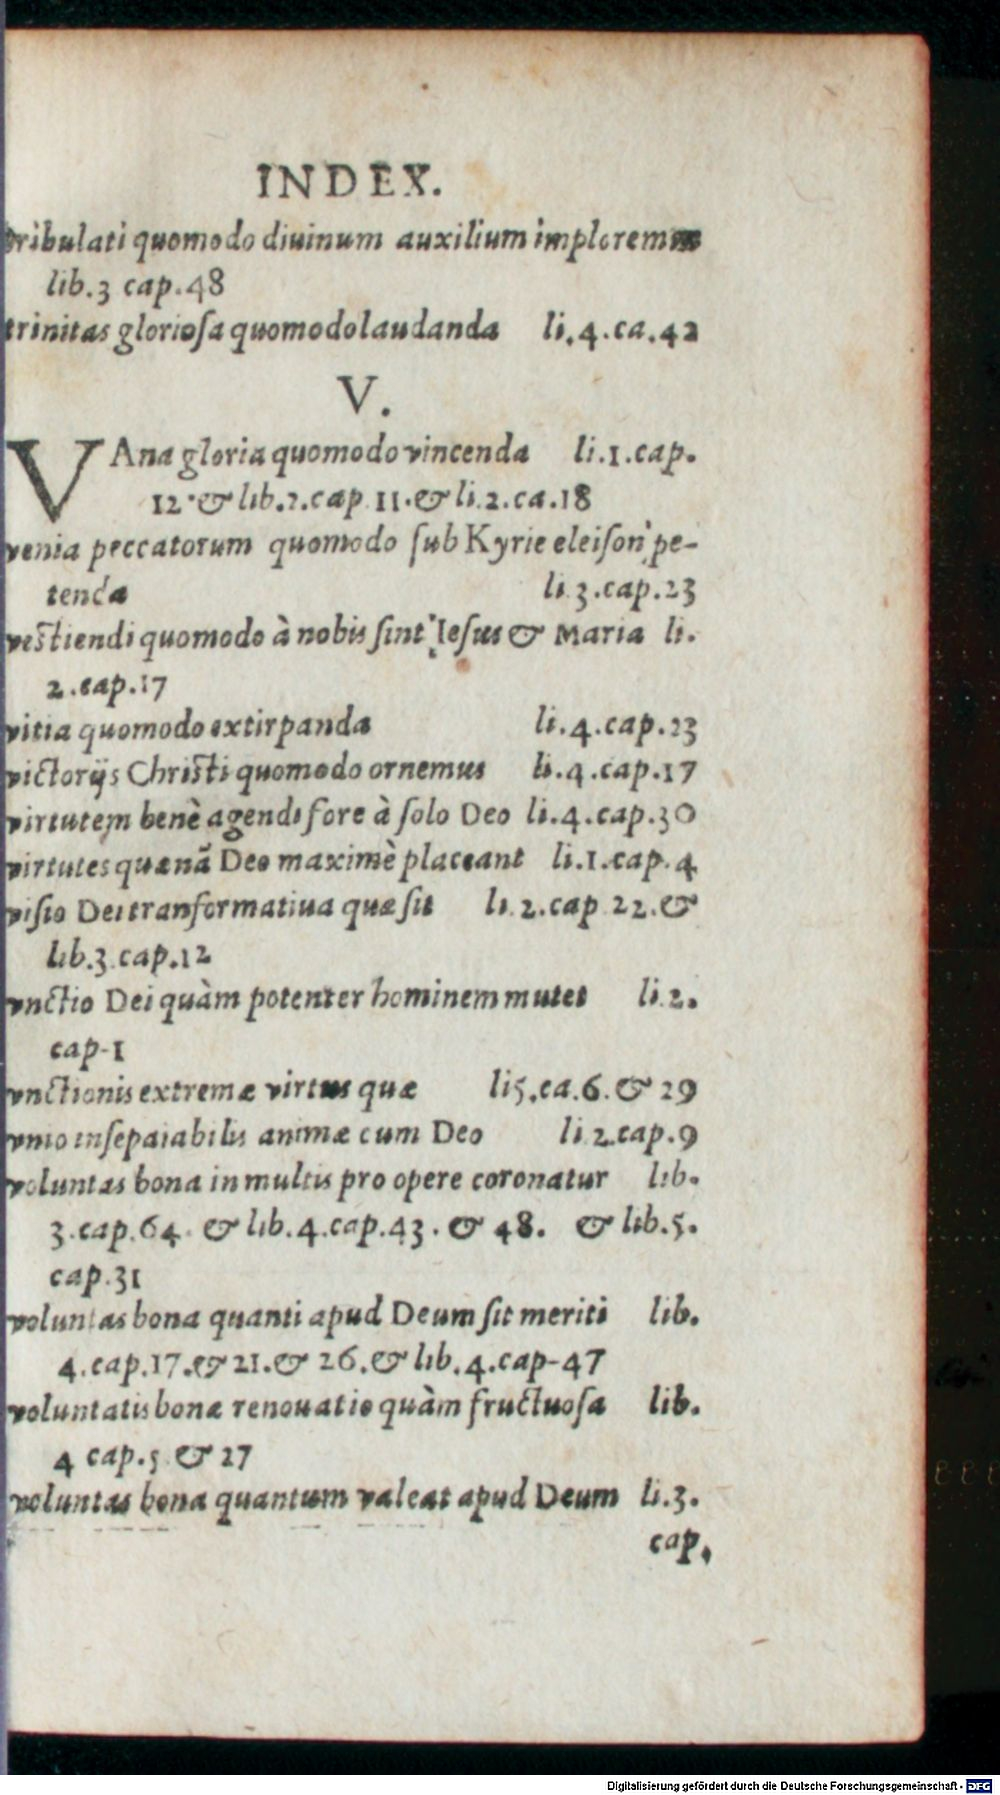 INDEX.
tribulati quomodo diuinum auxilium implorem
lib.3 cap.48
trinitas glorioſa quomodo laudanda li.4.ca.42
V.
VAna gloria quomodo vincenda li.1.cap.
12.& lib.2.cap 11.& li.2.ca.18
venia peccatorum quomodo ſub Kyrie eleiſon pe-
tenda li.3.cap.23
veſtiendi quomodo à nobis ſint Ieſus & Maria li.
2.cap.17
vitia quomodo extirpanda li.4.cap.23
victorijs Chriſti quomodo ornemus li.4.cap.17
virtutem benè agendi fore à ſolo Deo li.4.cap.30
virtutes quænã Deo maximè placeant li.1.cap.4
viſio Dei tranſformatiua quæ ſit li.2.cap 22.&
lib.3.cap.12
vnctio Dei quàm potenter hominem mutet li.2.
cap-1
vnctionis extremæ virtus quæ li5.ca.6.& 29
vnio inſeparabilis animæ cum Deo li.2.cap.9
voluntas bona in multis pro opere coronatur lib.
3.cap.64. & lib.4.cap.43. & 48. & lib.5.
cap.31
voluntas bona quanti apud Deum ſit meriti lib.
4.cap.17.& 21.& 26.& lib.4.cap-47
voluntatis bonæ renouatio quàm fructuoſa lib.
4 cap.5 & 27
voluntas bona quantum valeat apud Deum li.3.
cap.
Digitalisierung gefördert durch die Deutsche Forschungsgemeinschaft - DFG